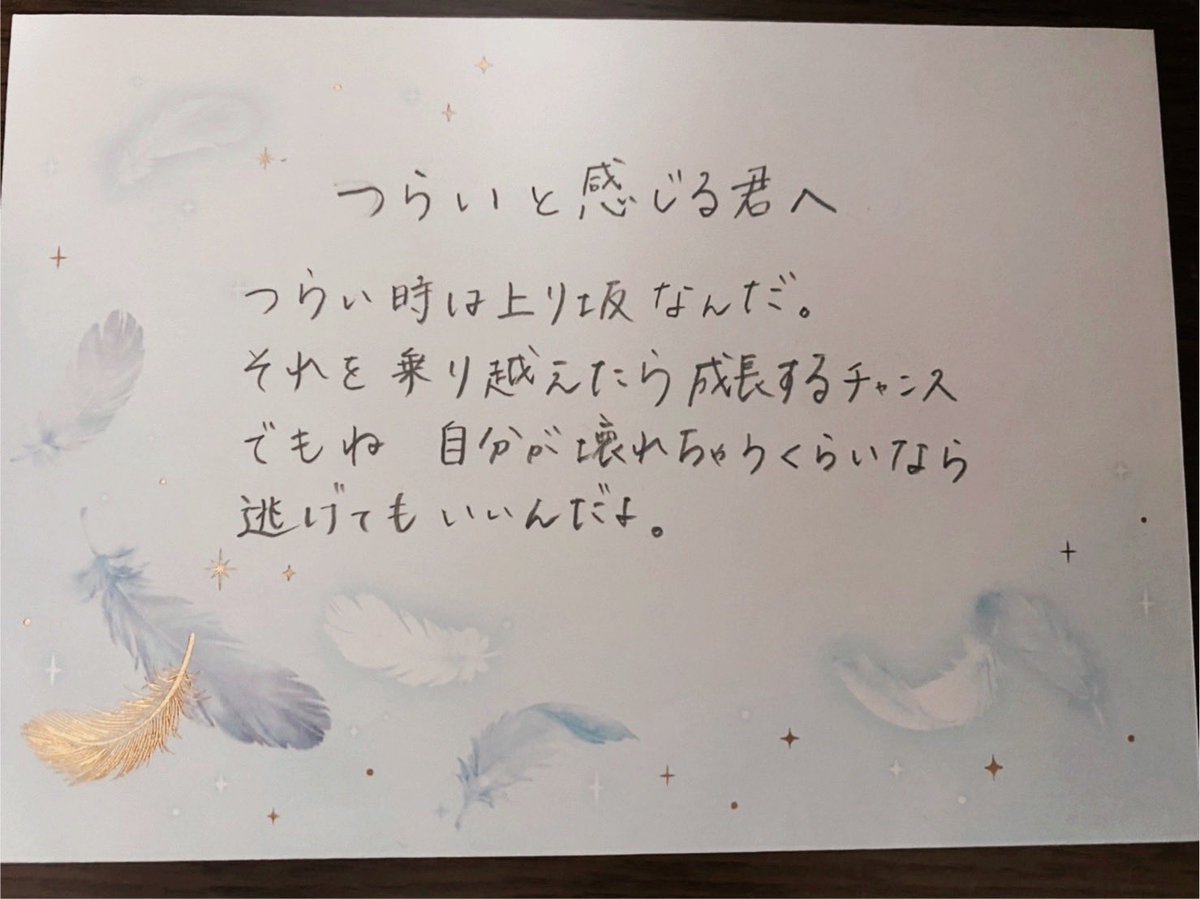 つらいと感じる君へ
つらい時は上り坂なんだ。
それを乗り越えたら成長するチャンス
でもね 自分が壊れちゃうくらいなら
逃げてもいいんだよ。